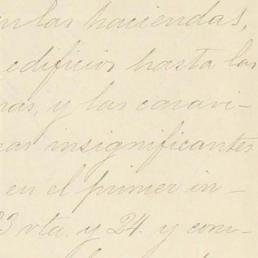 en las haciendas,
edificios hasta las
ras, y las caravi-
car insignificantes
en el primer in-
3 vta. y 24 y com-